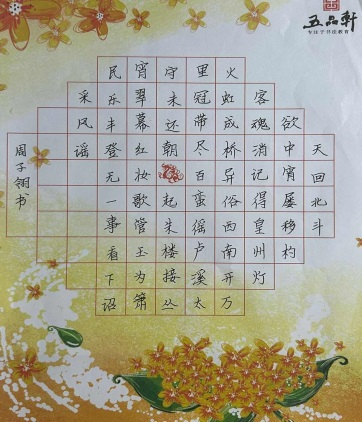 五品轩
专注于书法教育
天回北斗
欲中宵屡移杓
客魂消记得皇州灯
火虹成桥异俗西南开万
里冠带尽百蛮徭卢溪太
守未还朝起朱楼接丛
宵翠幕红妆歌管玉为箫
民乐丰登无一事看下诏
采风谣
周子翎书